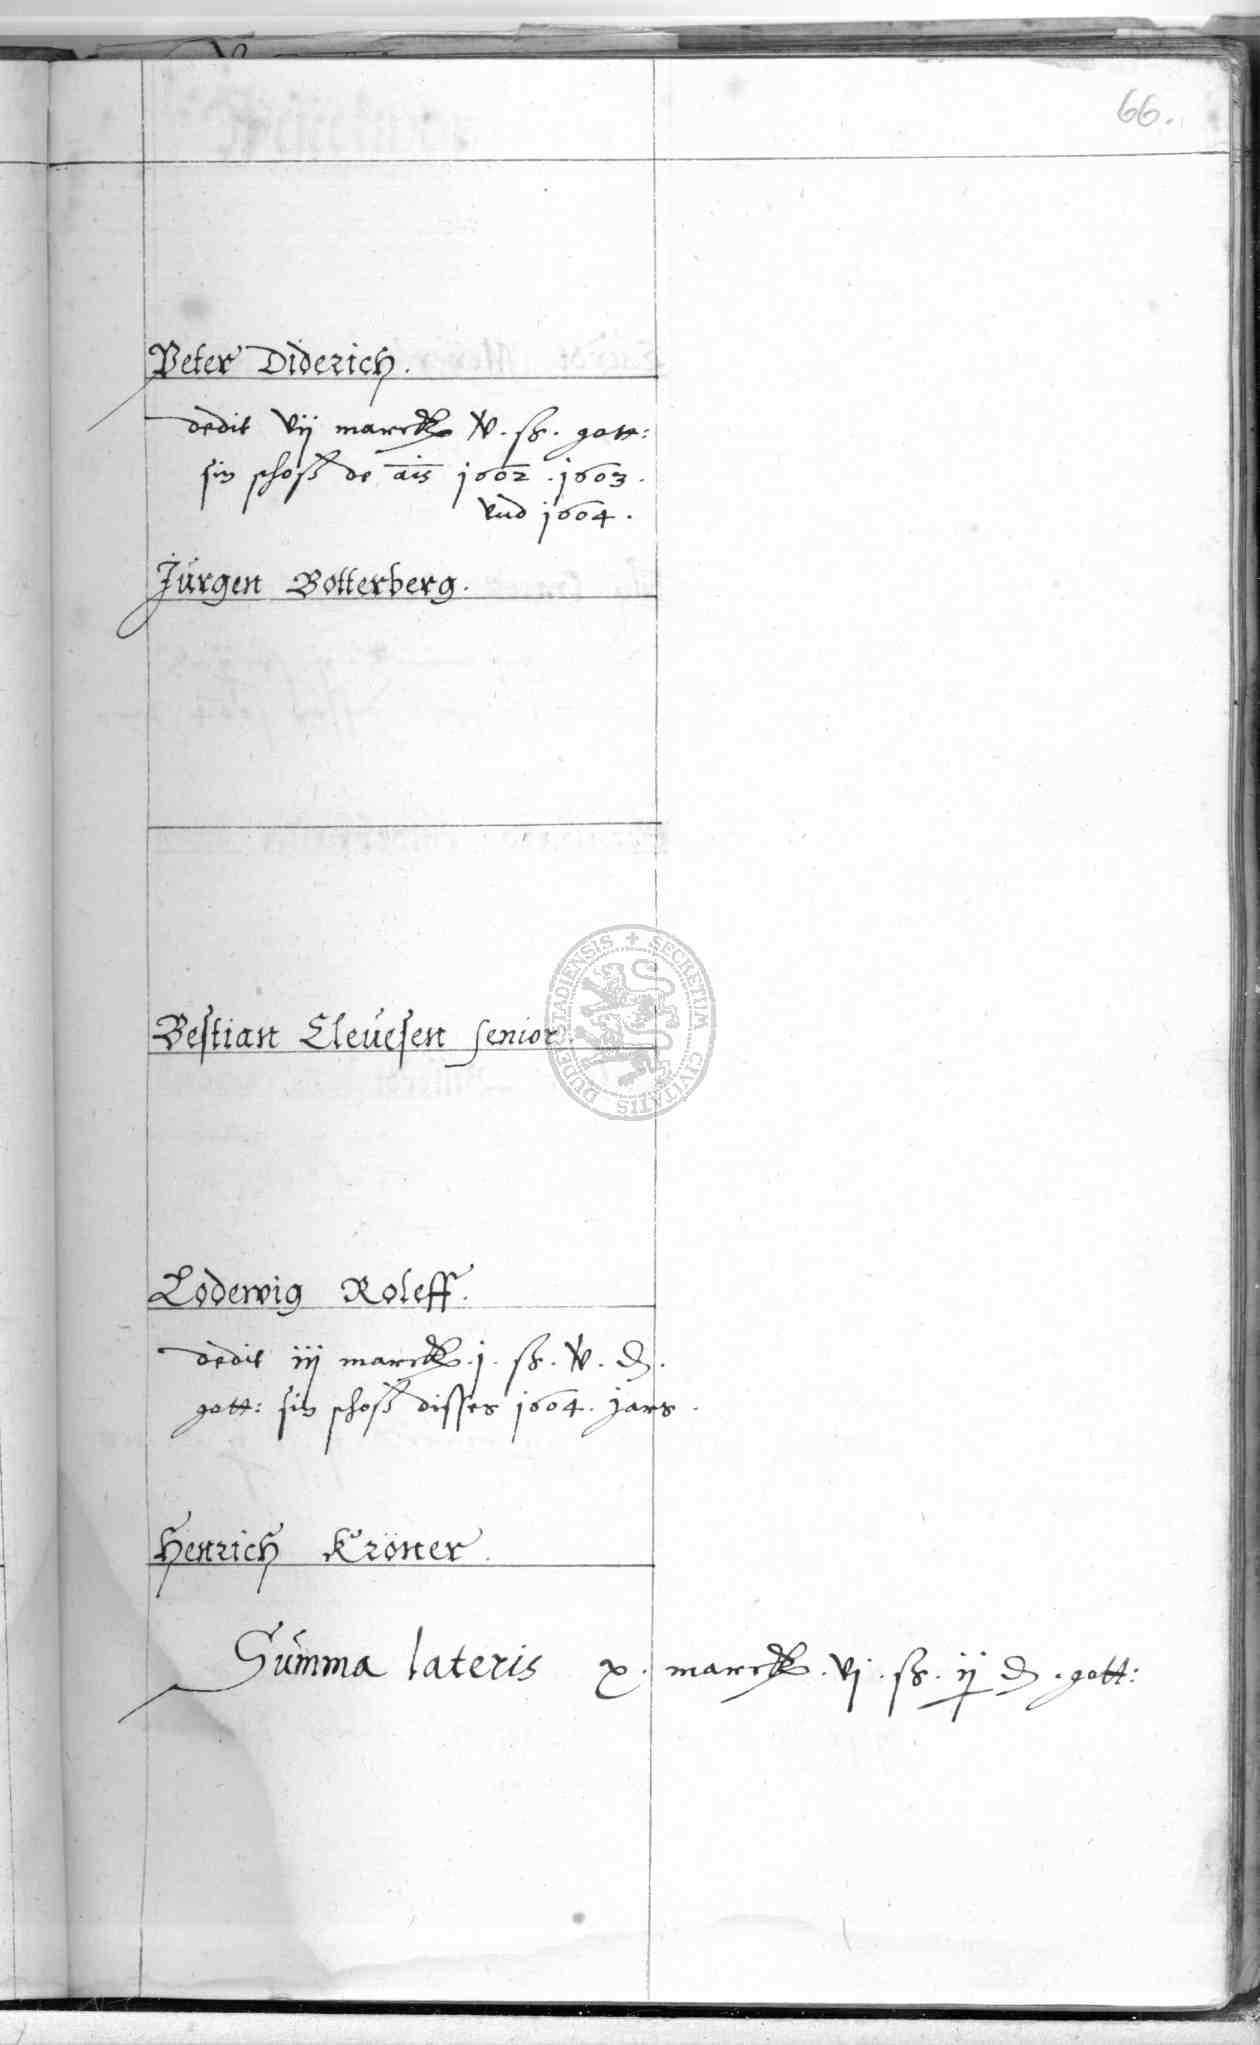 66.
Peter Diderich.
dedit vij marck v. ß. gott:
sin schoß de ais 1602. 1603.
vnd 1604.
Jürgen Botterberg.
Bestian Elevesen senior.
SECRETUM CIVITATIS DUDERSTADIENSIS
Lodewig Roleff.
dedit iij marck. j. ß. v. d.
gott: sin schoß disses 1604. jars.
Henrich Kröner.
Summa lateris x. marck. vj. ß. ij d. gott: